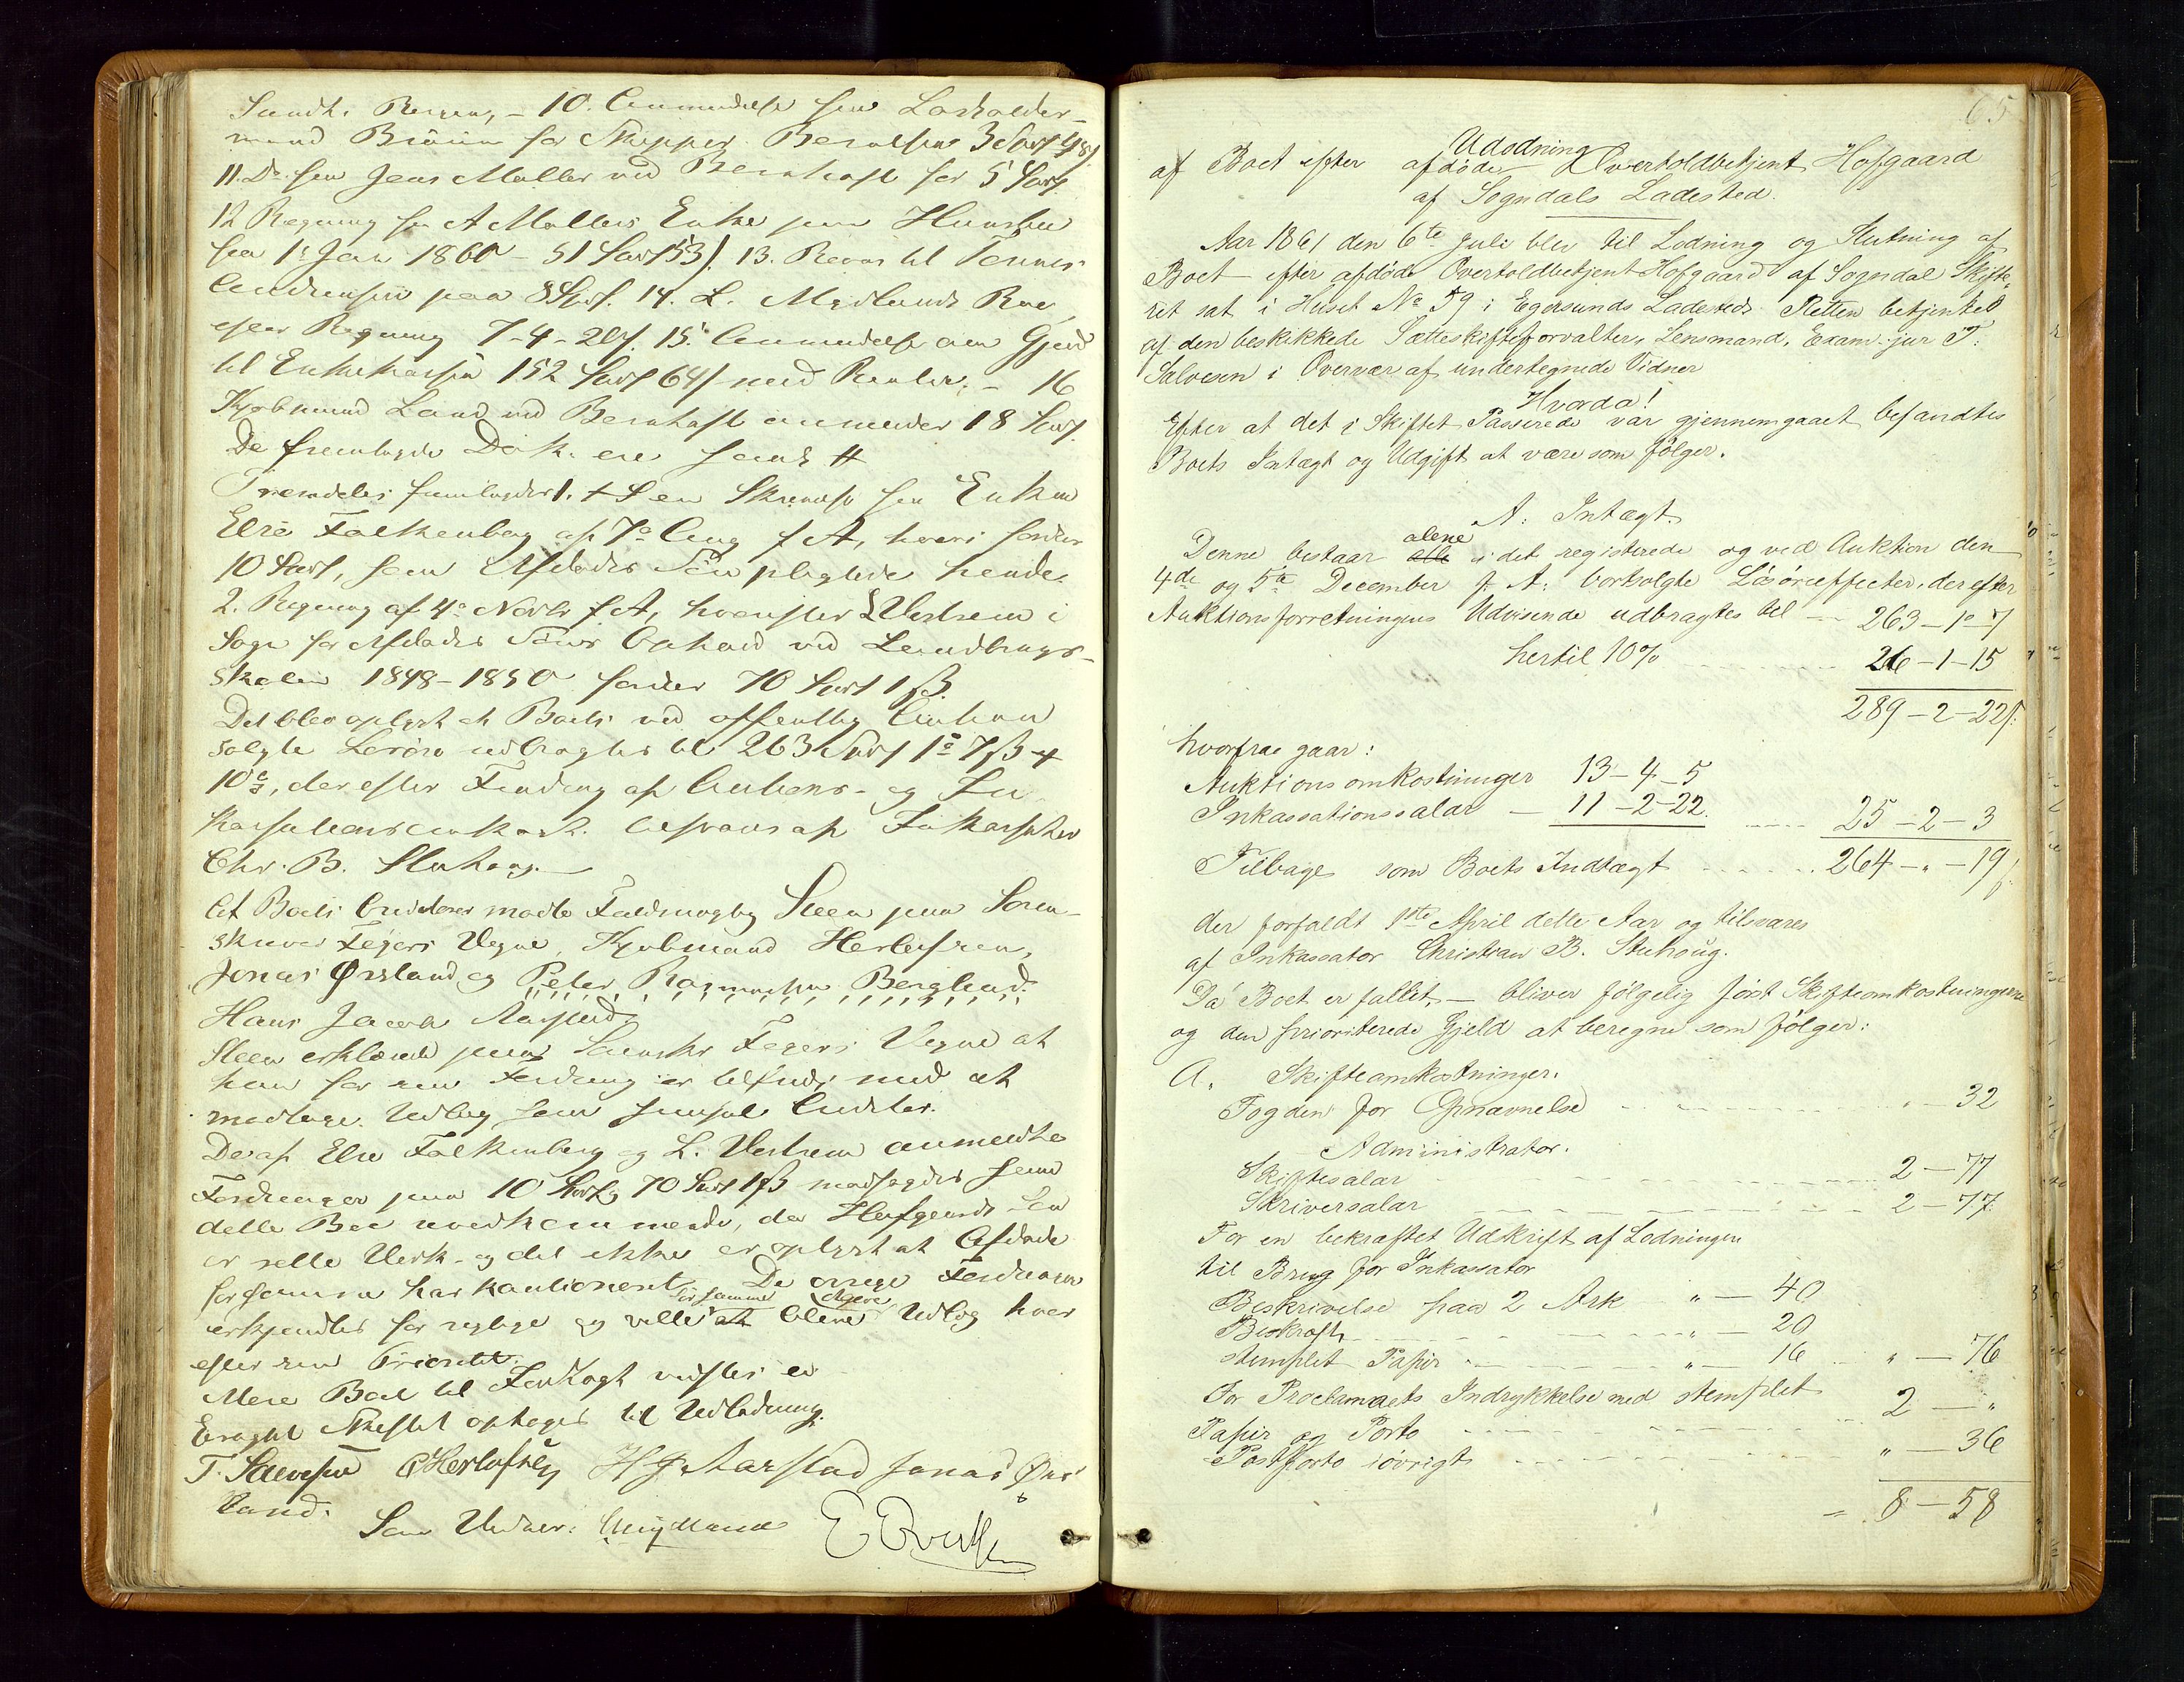 Sundt i Bergen, – 10. Anmeldelse fra Lodsolder-
mand Bruun for Skipper 3
11. Do. fra Jens Møller ved Bernhoft for 5
12 Regning fra A Møllers Enke
fra 1e Jan 1860 – 51 53/. 13. Bevis til Tønnes
paa 8 14. L. Mydlands
efter Regning 7-4-20/. 15. Anmeldelse om Gjeld
til Enkekassen 152 64/ med Renter. – 16
Kjøbmand Lund ved Bernhoft anmelder 18
De fremlagde Dok. ere saal. #
Fremdeles fremlagdes 1. en Skrivelse fra Enken
Else Falkenberg af 7e Aug f A, hvori fordres
10, som Afdødes Søn pligtede hende.
2. Regning af 4e Novbr f. A, hvorefter L Vestrem i
Sogn for Afdødes Søns Ophold ved Landbrugs-
skolen 1848-1850 fordrer 70 1 ß.
Det blev oplyst at Boets ved offentlig Auktion
solgte Løsøre udbragtes til 263 1 7 ß +
10, der efter Fradrag af Auktions- og In-
kassationsomkost. besvares af Inkassator
Chr. B. Stuhoug. –
Af Boets Creditorer mødte Fuldmægtig Steen paa Soren-
skriver Feyers Vegne, Kjøbmand Herlofsen,
Jonas Ørsland og Peter Rasmussen Berglund.
Hans Jacob Aarstad.
Steen erklærede paa Feyers Vegne at
han for sin Fordring er tilfreds med at
modtage Udlæg som simpel Creditor.
De af Else Falkenberg og L. Vestrem anmeldte
Fordringer paa 10 og 70 1 ß modsagdes som
dette Bo uvedkommende, da Hofgaards Søn
er selv Værk- og det ikke er oplyst at Afdøde
for samme har kautioneret. De øvrige Fordringer
erkjendtes for rigtige og ville for samme blive Udlæg hver
efter sin Prioritet.
Mere Boet til Indtægt vidstes ei
Eragtet Skiftet optages til Udlodning.
T. Salvesen Herlofsen H J Aarstad Jonas Ørs-
land.
Som Vidner: Mydland E Evertsen
65
Udlodning
af Boet efter afdøde Overtoldbetjent Hofgaard
af Sogndals Ladested.
Aar 1861 den 6te Juli blev til Lodning og Slutning af
Boet efter afdøde Overtoldbetjent Hofgaard af Sogndal Skifte-
ret sat i Huset No 59 i Egersunds Ladested. Retten betjentes
af den beskikkede Sætteskifteforvalter, Lensmand, Exam. jur T.
Salvesen i Overvær af undertegnede Vidner
Hvorda!
Efter at det i Skiftet Passerede var gjennemgaaet befandtes
Boets Intægt og Udgift at være som følger.
A: Intægt.
alene
Denne bestaar alle i det registerede og ved Auktion den
4de og 5te December f. A. bortsolgte Løsøreeffecter, der efter
Auktionsforretningens Udvisende udbragtes til – 263 – 1 – 7
hertil 10% – – – 26 – 1 – 15
289 – 2 – 22ß.
hvorfra gaar:
Auktionsomkostninger 13 – 4 – 5
Inkassationssalar – 11 – 2 – 22. – – – 25 – 2 – 3
Tilbage som Boets Indtægt – – – 264 – „ – 19ß.
der forfaldt 1ste April dette Aar og tilsvares
af Inkassator Christian B. Stuhoug.
Da Boet er fallit, – bliver følgelig først Skifteomkostningerne
og den prioriterede Gjeld at beregne som følger:
A. Skifteomkostninger.
Fogden for Opnævnelse – – – „ – 32
Administrator.
Skiftesalar – – – 2 – 77
Skriversalar – – – 2 – 77.
For en bekræftet Udskrift af Lodningen
til Brug for Inkassator
Beskrivelse paa 2 Ark „ – 40
Bekræft. – – – „ – 20
stemplet Papir – – – „ – 16 – – „ – 76
For Proclamaets Indrykkelse med stemplet
Papir og Porto – – – 2 – „
Postporto iøvrigt – – – „ – 36
= 8 – 58